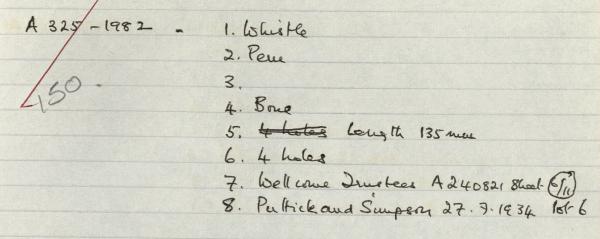 A 325-1982 - 1. Whistle
2. Peru
3.
150 -
4. Bone
5. 4 holes Length 135 mm
6. 4 holes
7. Wellcome Trustees A240821 Sheet 6/11
8. Puttick and Simpson 27.9.1934 lot 6